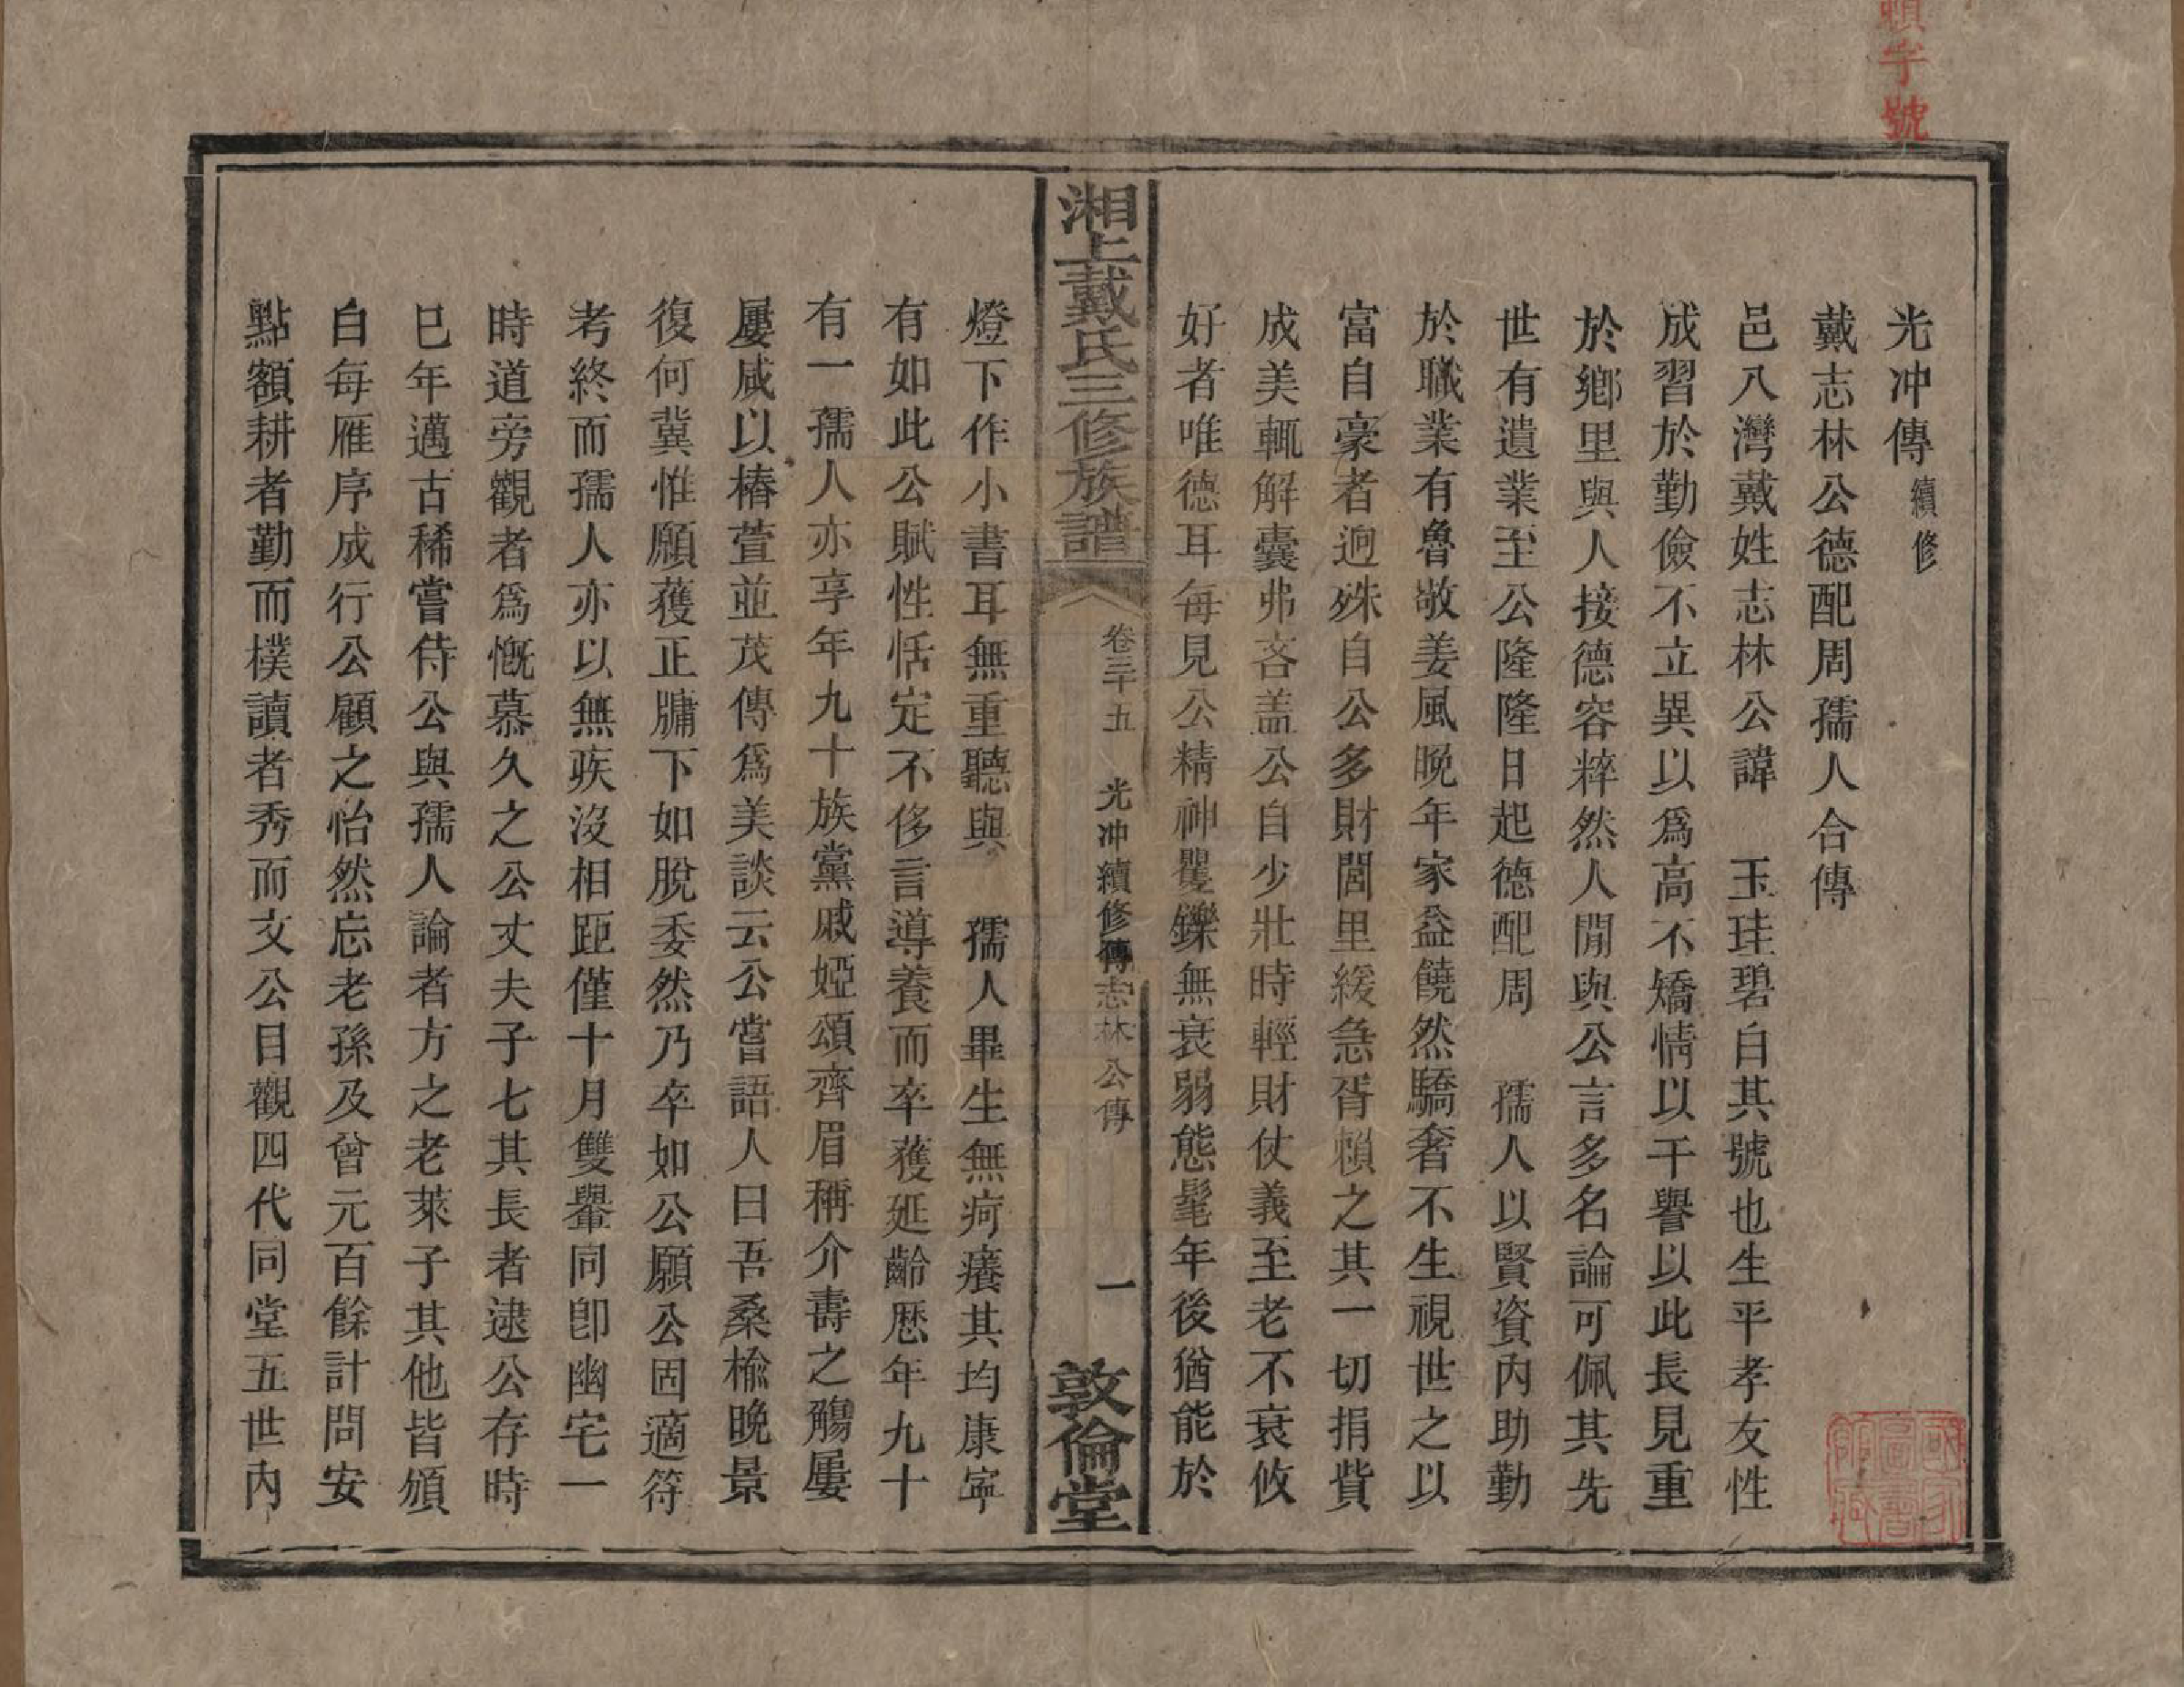 光冲傳 續修
戴志林公德配周孺人合傳
邑八灣戴姓志林公諱　玉珪碧白其號也生平孝友性
成習於勤儉不立異以爲高不矯情以干譽以此長見重
於鄉里與人接德容粹然人閒與公言多名論可佩其先
世有遺業至公隆隆日起德配周　孺人以賢資內助勤
於職業有魯敬姜風晚年家益饒然驕奢不生視世之以
富自豪者逈殊自公多財閭里緩急胥賴之其一切捐貲
成美輒解囊弗吝盖公自少壯時輕財仗義至老不衰攸
好者唯德耳每見公精神矍鑠無衰弱態髦年後猶能於
湘上戴氏三修族譜
卷三十五
光冲續修傳志林公傳
一
敦倫堂
燈下作小書耳無重聽與　孺人畢生無疴癢其均康寧
有如此公賦性恬定不侈言導養而卒獲延齡歷年九十
有一孺人亦享年九十族黨戚婭頌齊眉稱介壽之觴屢
屢咸以椿萱並茂傳爲美談云公嘗語人曰吾桑榆晚景
復何冀惟願獲正牖下如脫委然乃卒如公願公固適符
考終而孺人亦以無疾沒相距僅十月雙轝同卽幽宅一
時道旁觀者爲慨慕久之公丈夫子七其長者逮公存時
巳年邁古稀嘗侍公與孺人論者方之老萊子其他皆頒
白每雁序成行公顧之怡然忘老孫及曾元百餘計問安
點額耕者勤而樸讀者秀而文公目觀四代同堂五世內
字號